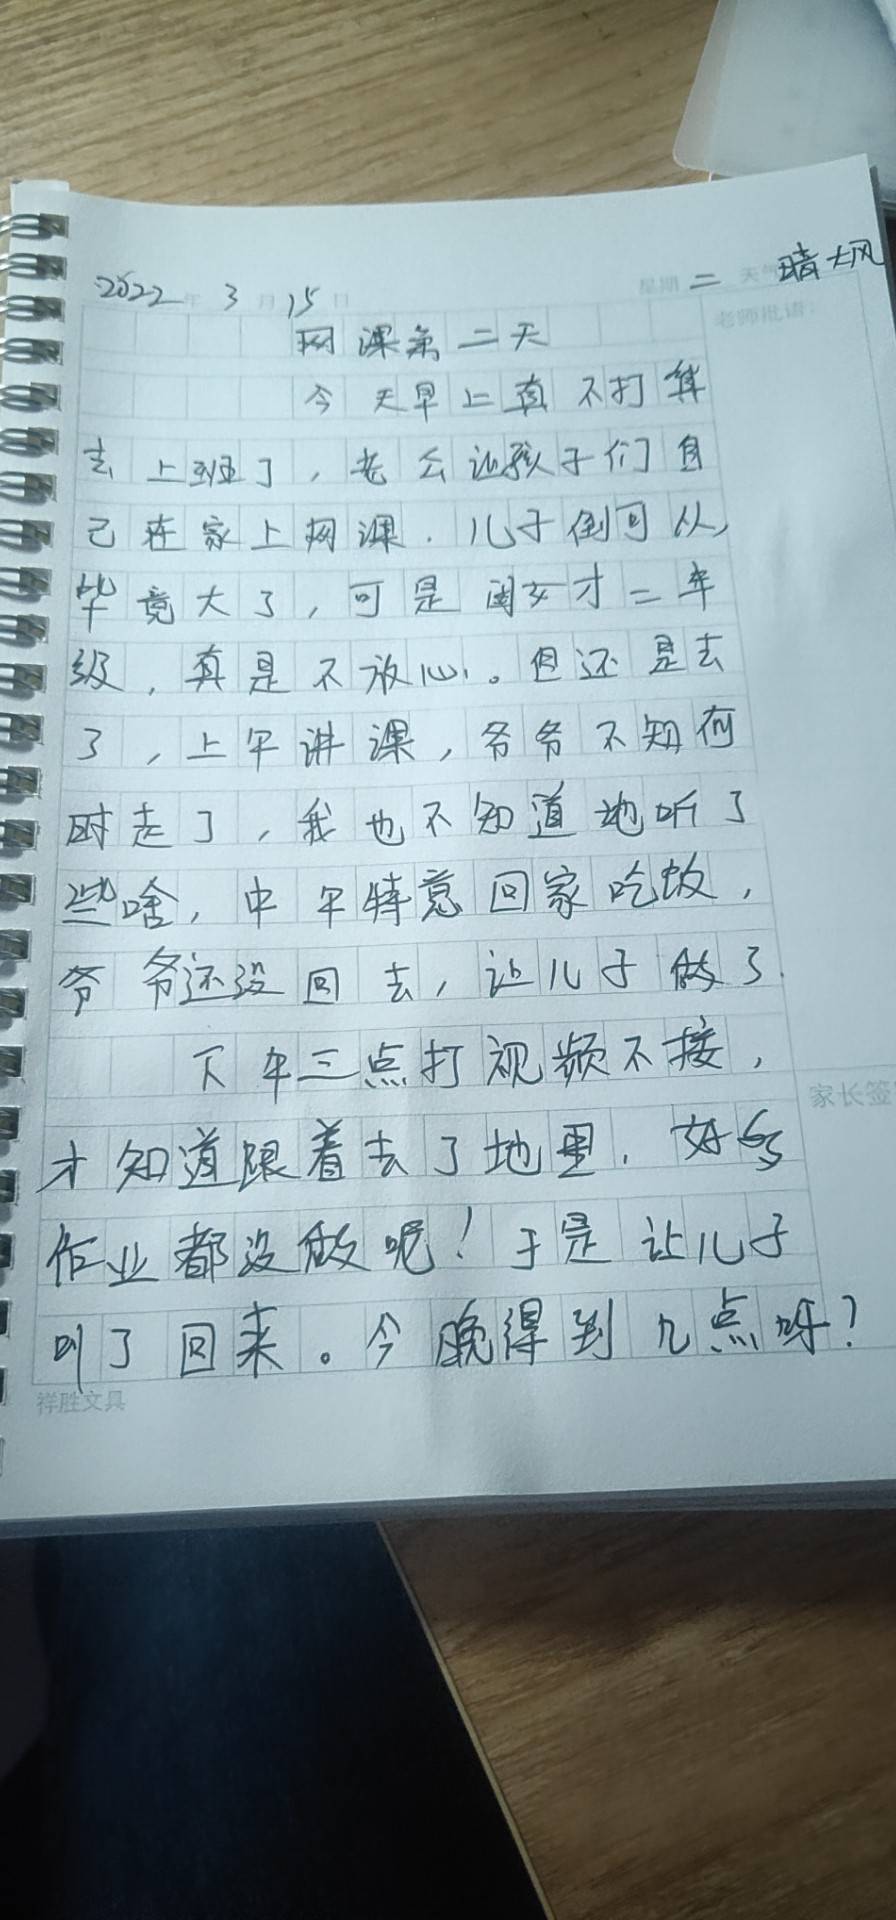 2022年 3月 15日 星期二 天气 晴大风
老师批语：
网课第二天
今天早上真不打算
去上班了，老公让孩子们自
己在家上网课．儿子倒可以，
毕竟大了，可是闺女才二年
级，真是不放心。但还是去
了，上午讲课，爷爷不知何
时走了，我也不知道她听了
些啥，中午特意回家吃饭，
爷爷还没回去，让儿子做了．
下午三点打视频不接，
家长签
才知道跟着去了地里．好多
作业都没做呢！于是让儿子
叫了回来。今晚得到几点呀？
祥胜文具